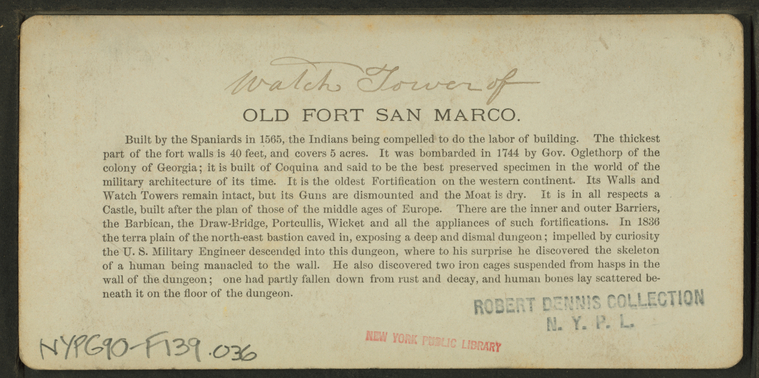 Watch Tower of
OLD FORT SAN MARCO.
Built by the Spaniards in 1565, the Indians being compelled to do the labor of building. The thickest
part of the fort walls is 40 feet, and covers 5 acres. It was bombarded in 1744 by Gov. Oglethorp of the
colony of Georgia; it is built of Coquina and said to be the best preserved specimen in the world of the
military architecture of its time. It is the oldest Fortification on the western continent. Its Walls and
Watch Towers remain intact, but its Guns are dismounted and the Moat is dry. It is in all respects a
Castle, built after the plan of those of the middle ages of Europe. There are the inner and outer Barriers,
the Barbican, the Draw-Bridge, Portcullis, Wicket and all the appliances of such fortifications. In 1836
the terra plain of the north-east bastion caved in, exposing a deep and dismal dungeon; impelled by curiosity
the U. S. Military Engineer descended into this dungeon, where to his surprise he discovered the skeleton
of a human being manacled to the wall. He also discovered two iron cages suspended from hasps in the
wall of the dungeon; one had partly fallen down from rust and decay, and human bones lay scattered be-
neath it on the floor of the dungeon.
ROBERT DENNIS COLLECTION
N. Y. P. L.
NEW YORK PUBLIC LIBRARY
NYPG90-F139.036